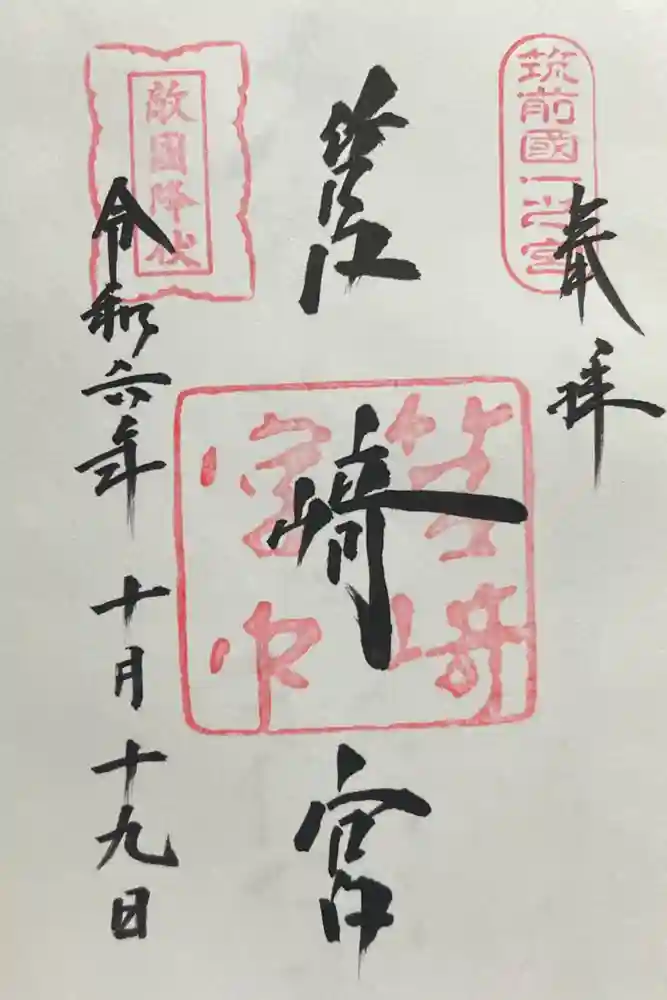 筑前國一之宮
奉拝
筥崎宮
筥崎宮印
敵國降伏
令和六年十月十九日